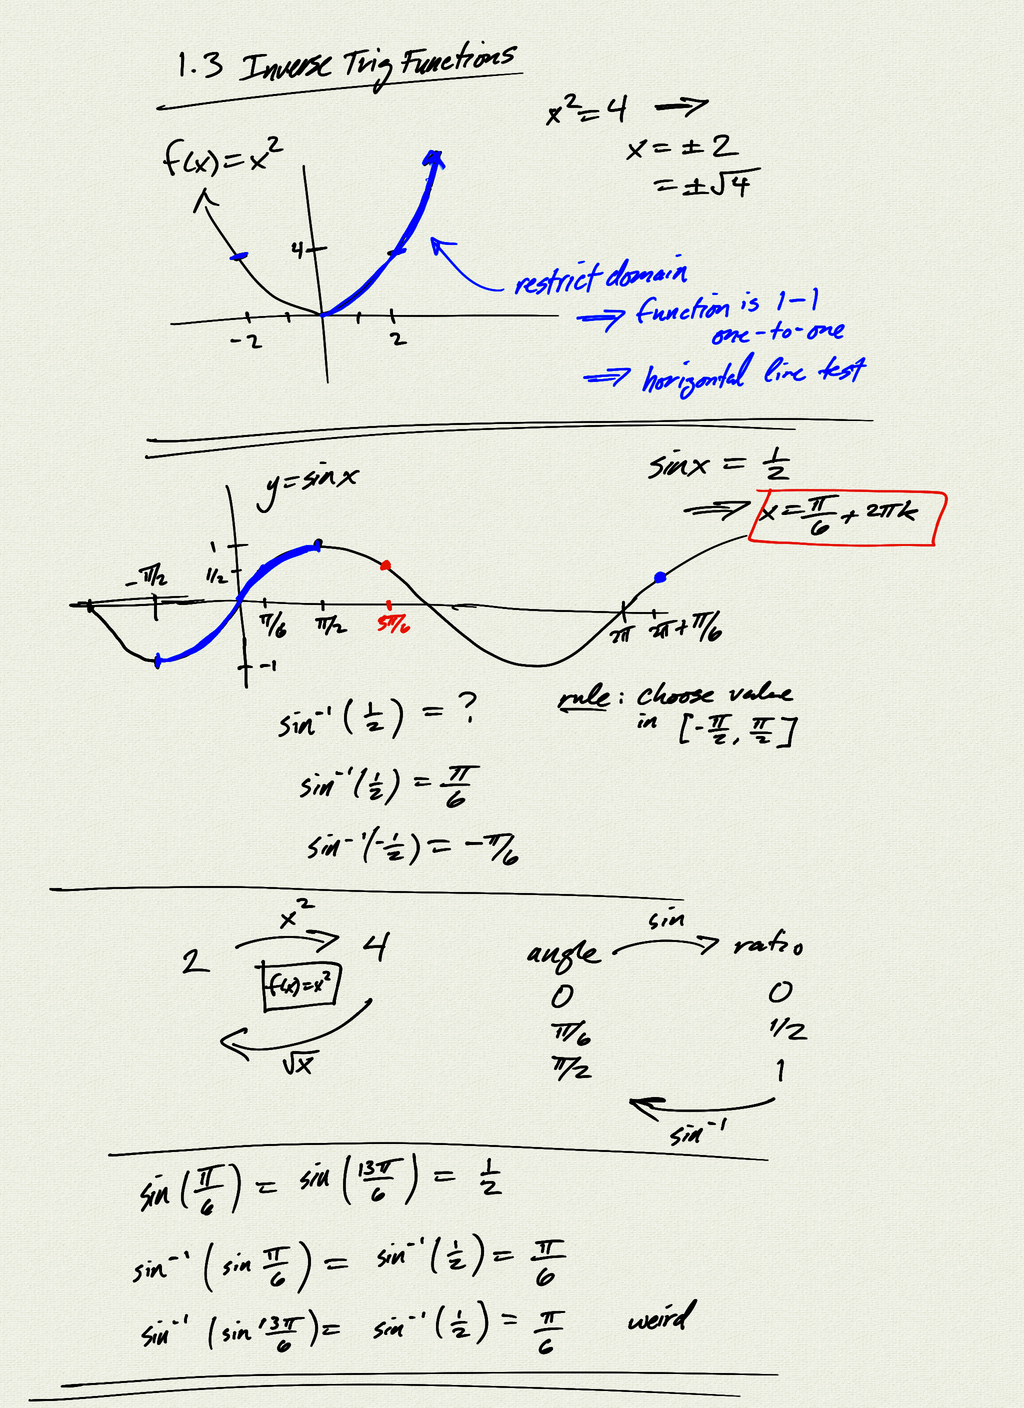 1.3 Inverse Trig Functions
x² = 4 →
x = ± 2
= ±√4
f(x) = x²
4
-2 2
restrict domain
⇒ function is 1-1
one-to-one
⇒ horizontal line test
y = sin x
sin x = 1/2
⇒ x = π/6 + 2πk
1
1/2
-π/2
π/6 π/2 5π/6 2π 2π + π/6
-1
sin⁻¹(1/2) = ?
rule: choose value
in [-π/2, π/2]
sin⁻¹(1/2) = π/6
sin⁻¹(-1/2) = -π/6
x²
2 4
f(x) = x²
√x
sin
angle ratio
0 0
π/6 1/2
π/2 1
sin⁻¹
sin(π/6) = sin(13π/6) = 1/2
sin⁻¹(sin π/6) = sin⁻¹(1/2) = π/6
sin⁻¹(sin 13π/6) = sin⁻¹(1/2) = π/6 weird